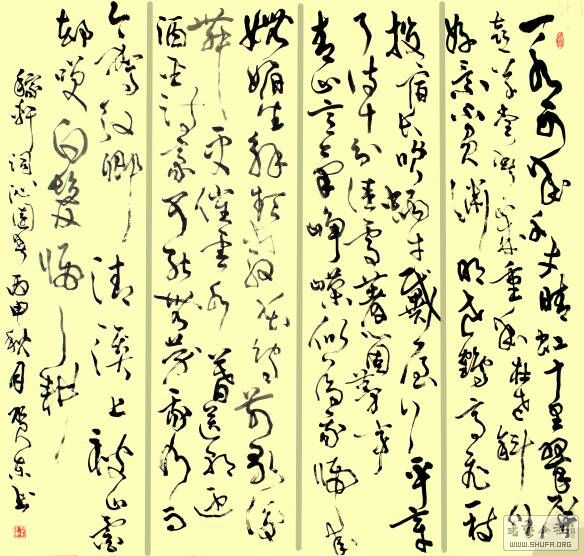 一水西来千丈晴虹十里翠屏
喜草堂经岁重来杜老斜川
好景不负渊明老鹤高飞一枝
投宿长笑蜗牛戴屋行平章
了待十分佳处著个茅亭
青山意气峥嵘似为我归来
妩媚生解频教花鸟前歌后
舞更催云水暮送朝迎
酒圣诗豪可能无势我乃而
今驾驭卿清溪上被山灵
却笑白发归耕
稼轩词沁园春丙申秋月东书
WWW.SHUFA.ORG